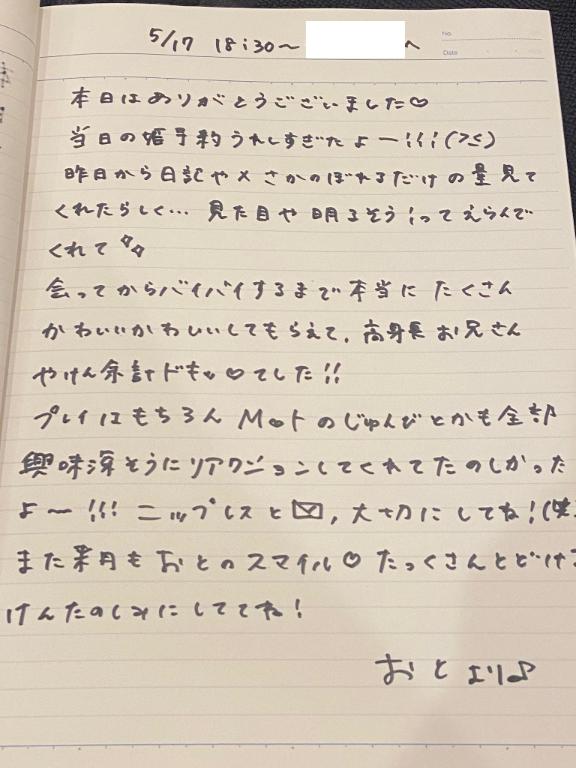 No.
Date
5/17 18:30〜 へ
本日はありがとうございました♡
当日の姫予約うれしすぎたよー!!!(><)
昨日から日記やXさかのぼれるだけの量見て
くれたらしく… 見た目や明るそう!ってえらんで
くれて
会ってからバイバイするまで本当にたくさん
かわいいかわいいしてもらえて、高身長お兄さん
やけん余計ドキッ♡てした!!
プレイはもちろんMットのじゅんびとかも全部
興味深そうにリアクションしてくれてたのしかった
よ〜!!! ニップレスと✉, 大切にしてね!(笑
また来月もおとのスマイル♡たっくさんとどける
けんたのしみにしててね!
おとより♪